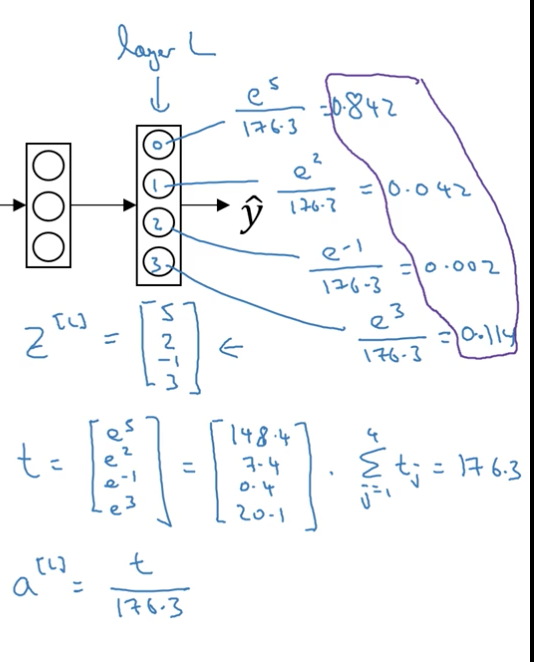 layer L
0 e^5/176.3 = 0.842
1 e^2/176.3 = 0.042
ŷ
2 e^-1/176.3 = 0.002
3 e^3/176.3 = 0.114
z^[L] = [5 2 -1 3] ←
t = [e^5 e^2 e^-1 e^3] = [148.4 7.4 0.4 20.1] . 4∑j=1 tj = 176.3
a^[L] = t/176.3